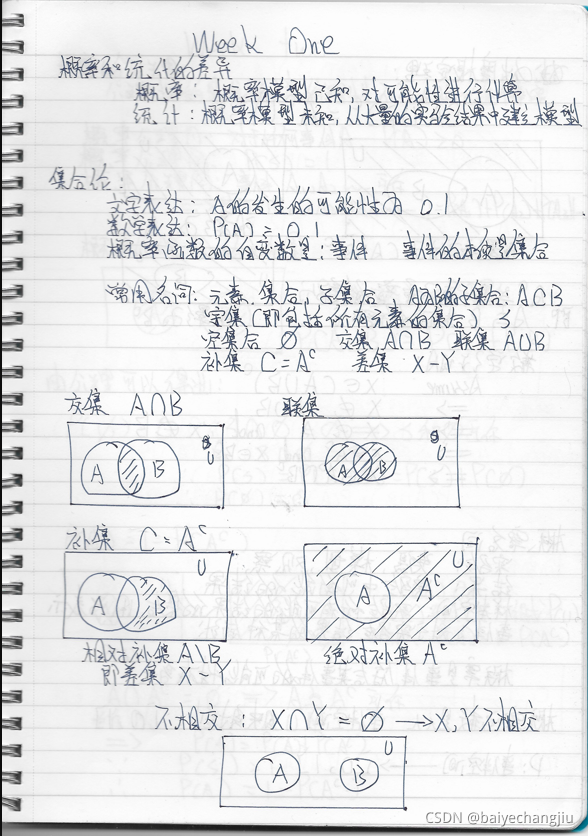 Week One
概率和统计的差异
概率：概率模型已知，对可能性进行计算
统计：概率模型未知，从大量的实验结果中建立模型
集合论：
文字表达：A的发生的可能性为 0.1
数字表达：P(A) = 0.1
概率函数的自变数是：事件 事件的本质是集合
常用名词：元素、集合，子集合 A为B的子集合：A⊂B
宇集（即包括所有元素的集合） S
空集合 ∅ 交集 A∩B 联集 A∪B
补集 C=Aᶜ 差集 X-Y
交集 A∩B 联集
A B U
A B U
补集 C=Aᶜ
A B U
A Aᶜ U
相对补集 A\B 绝对补集 Aᶜ
即差集 X-Y
不相交：X∩Y=∅ → X,Y不相交
A B U
CSDN @baiyechangjiu